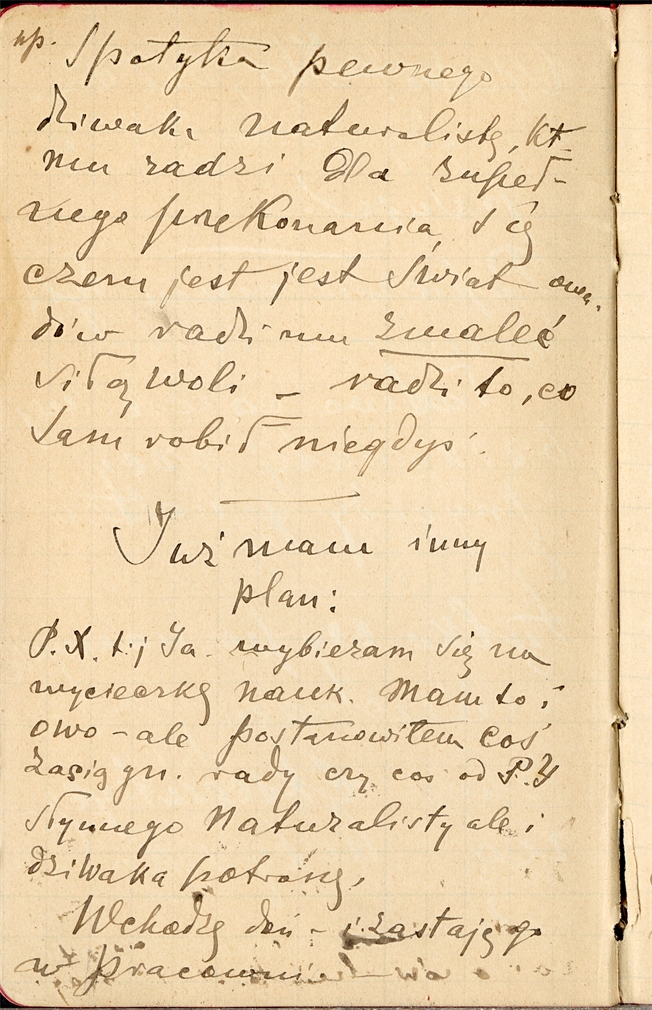 np. Spotyka pewnego
dziwaka naturalistę, kt
mu radzi dla zupeł-
nego przekonania się
czem jest jest świat owa
dów radzi mu zmaleć
siłą woli – radzi to, co
sam robił niegdyś.
Już mam inny
plan:
P. X. t.j Ja wybieram się na
wycieczkę nauk. Mam to i
owo – ale postanowiłem coś
zasięgn. rady czy cos od P. Y
słynnego Naturalisty ale i
dziwaka potrosze,
Wchodzę doń – i zastaję go
w pracowni